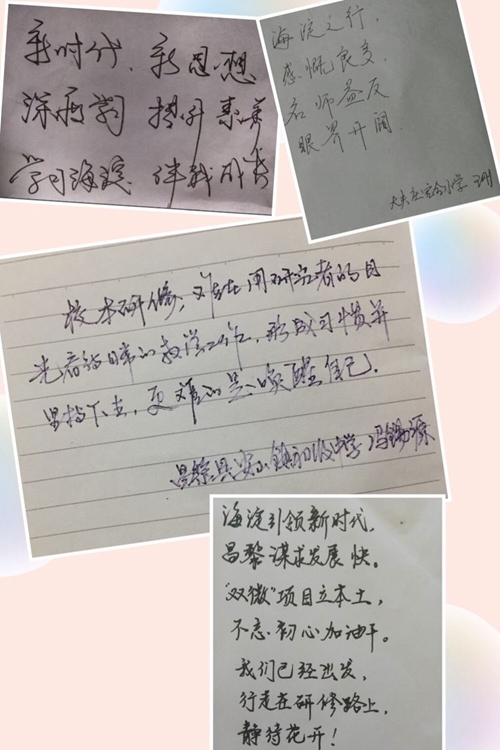 新时代、新思想
深研学 提升素养
学习海淀 伴我成长
海淀之行，
感慨良多，
名师益友
眼界开阔
大夫庄完全小学
校本研修，难在用研究者的目
光看待日常的教学工作，形成习惯并
坚持下去，更难的是唤醒自己。
昌黎县安山镇初级中学 冯锡源
海淀引领新时代，
昌黎谋求发展快。
“双微”项目立本土，
不忘初心加油干。
我们已经出发，
行走在研修路上，
静待花开！